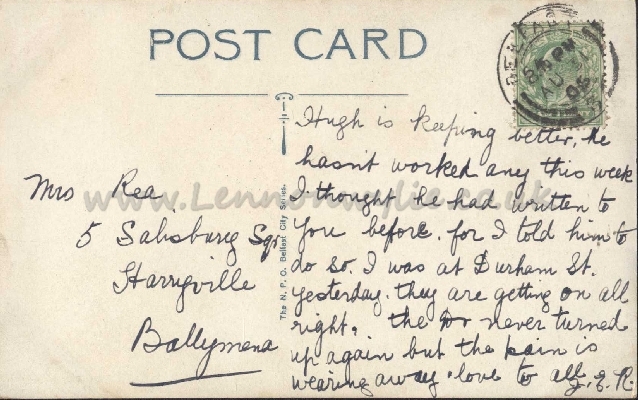 POST CARD
BELFAST
AU
05
Hugh is keeping better, he
hasn't worked any this week
I thought he had written to
you before, for I told him to
do so. I was at Durham St.
yesterday. they are getting on all
right, the Dr never turned
up again but the pain is
wearing away. love to all J. E. R.
Mrs Rea
5 Salisbury Sqr
Harryville
Ballymena
The N. P. O. Belfast City Series.
www.Lennonwylie.co.uk